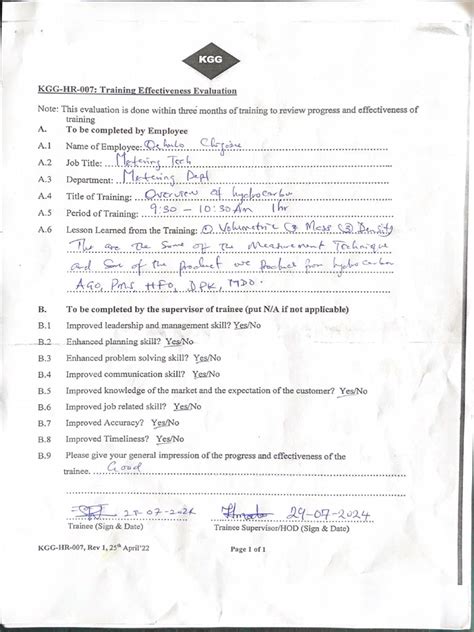 KGG
KGG-HR-007: Training Effectiveness Evaluation
Note: This evaluation is done within three months of training to review progress and effectiveness of
training
A. To be completed by Employee
A.1 Name of Employee:
A.2 Job Title: Metering Tech
A.3 Department: Metering Dept
A.4 Title of Training: Overview of hydrocarbon
A.5 Period of Training: 9:30 - 10:30Am 1hr
A.6 Lesson Learned from the Training: ① Volumetric ② Mass ③ Density
The are the Some of the Measurement Technique
and Some of the product we product from hydrocarbon
AGO, PMS, HFO, DPK, MDO.
B. To be completed by the supervisor of trainee (put N/A if not applicable)
B.1 Improved leadership and management skill? Yes/No
B.2 Enhanced planning skill? Yes/No
B.3 Enhanced problem solving skill? Yes/No
B.4 Improved communication skill? Yes/No
B.5 Improved knowledge of the market and the expectation of the customer? Yes/No
B.6 Improved job related skill? Yes/No
B.7 Improved Accuracy? Yes/No
B.8 Improved Timeliness? Yes/No
B.9 Please give your general impression of the progress and effectiveness of the
trainee. Good
29-07-2024
Trainee (Sign & Date) Trainee Supervisor/HOD (Sign & Date)
KGG-HR-007, Rev 1, 25th April'22 Page 1 of 1